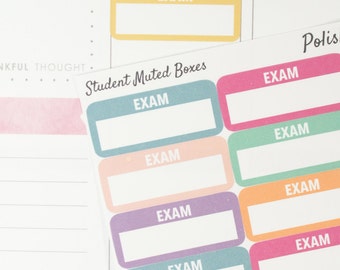 NKFUL THOUGHT
Student Muted Boxes
Polis
EXAM
EXAM
EXAM
EXAM
EXAM
EXAM
EXAM